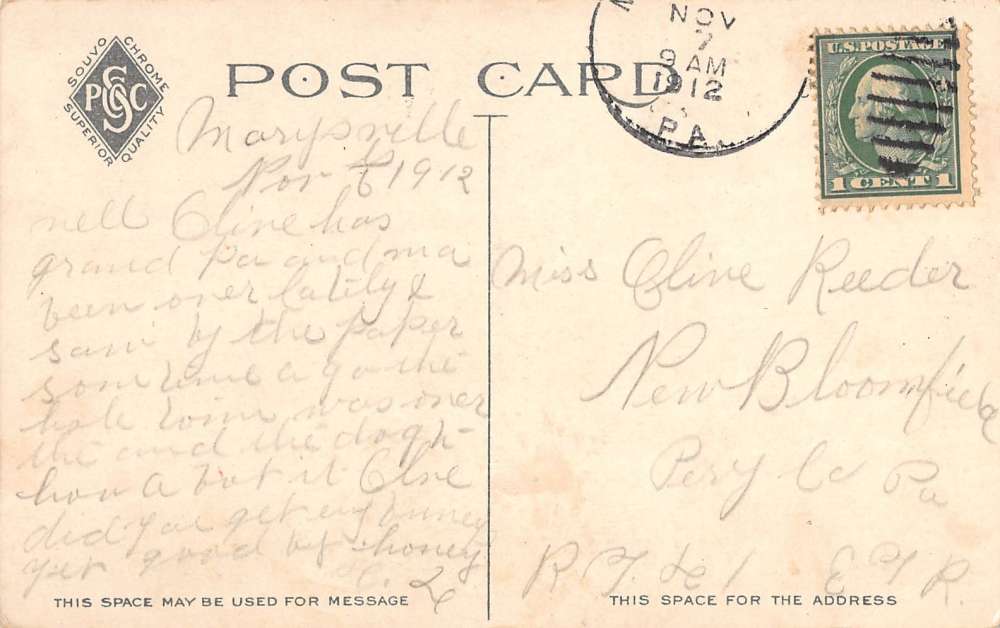 SOUVO CHROME
SUPERIOR QUALITY
POST CARD
NOV
7
9 AM
1912
PA.
U.S. POSTAGE
1 CENT 1
Marysville
Nov 6 1912
well Olive has
grand Pa and ma
been over latily &
saw by the paper
som time ago the
hole town was over
the and the dogh
how a bot it Olive
did you get eny buney
yet good by honey
Miss Olive Reeder
New Bloomfield
Pery Co Pa
R.F.D. 1
THIS SPACE MAY BE USED FOR MESSAGE
THIS SPACE FOR THE ADDRESS